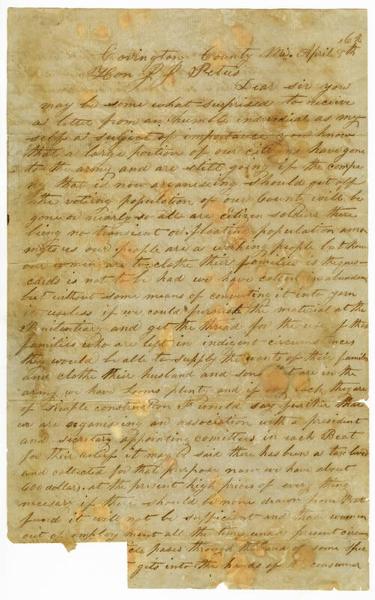 Covington County Mi. April 8th 1862
Hon J J Pettus
Dear sir you
may be some what surprised to receive
a letter from an humble individial as my
self a subject of importance you know
that a large portion of our citizens have gone
to the army and are still going if the compa
ny that is now organising should get off
the voting population of our County will be
gone or nearly so all are citizen soldiers there
being no transient or floating population amo
ngst us our people are a working people but how
our women are to clothe their families is the
cards is not to be had we have cotton in abundan
but without some means of converting it into yarn
it useless if we could furnish the material at the
Penitentiary and get the thread for the use of
families who are left in indigent circumstances
they would be able to supply the wants of their families
and clothe their husband and sons that are in the
army we have looms plenty and if not such they are
of simple construction I would say further that
we are organising an association with a president
and secretary appointing comittees in each Beat
for their relief it may be said there has been a tax levied
and collected for that purpose now we have about
600 dollars at the present high prices of every thing
necesary if there should be none drawn from that
fund it will not be sufficient and that women
out of employment all the time under present circum
pases through the hand of some
gets into the hands of the consumer